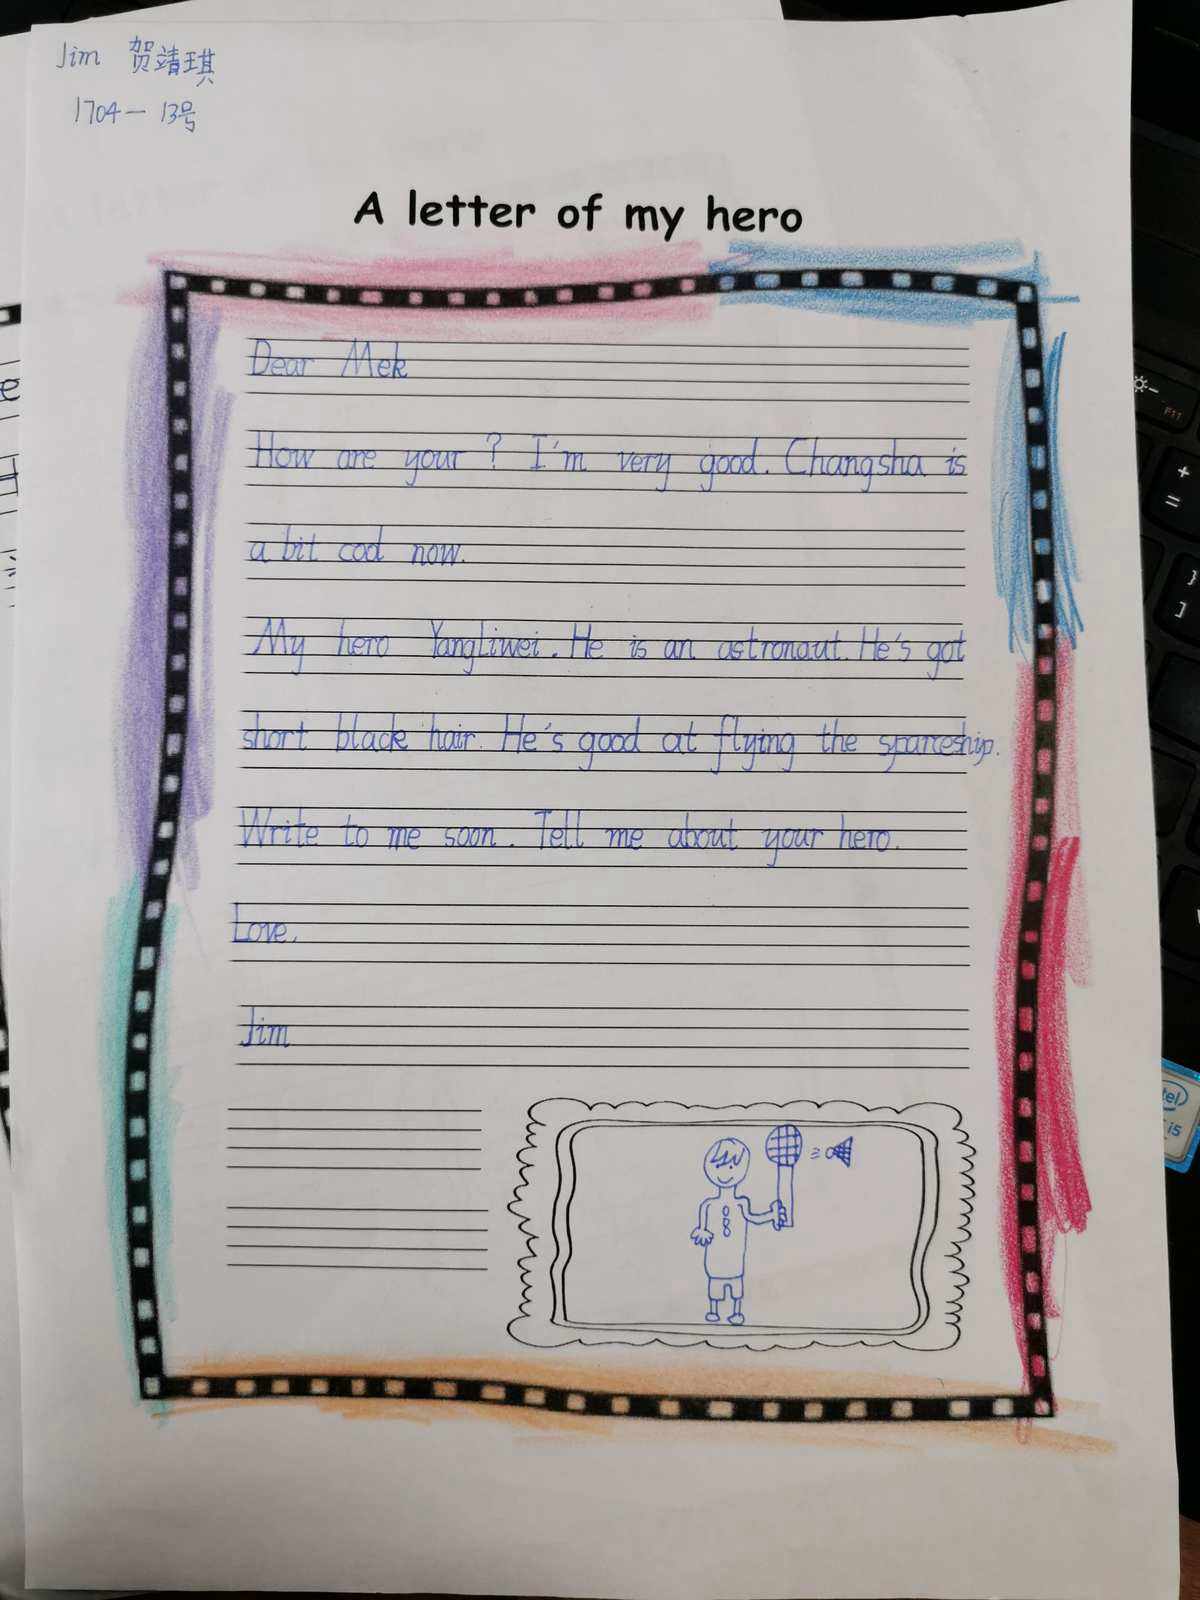 Jim 贺靖琪
1704—13号
A letter of my hero
Dear Mek
How are your? I'm very good. Changsha is
a bit cod now.
My hero Yangliwei. He is an astronaut. He's got
short black hair. He's good at flying the sparceship.
Write to me soon. Tell me about your hero.
Love,
Jim
F11
+
=
}
]
intel
i5